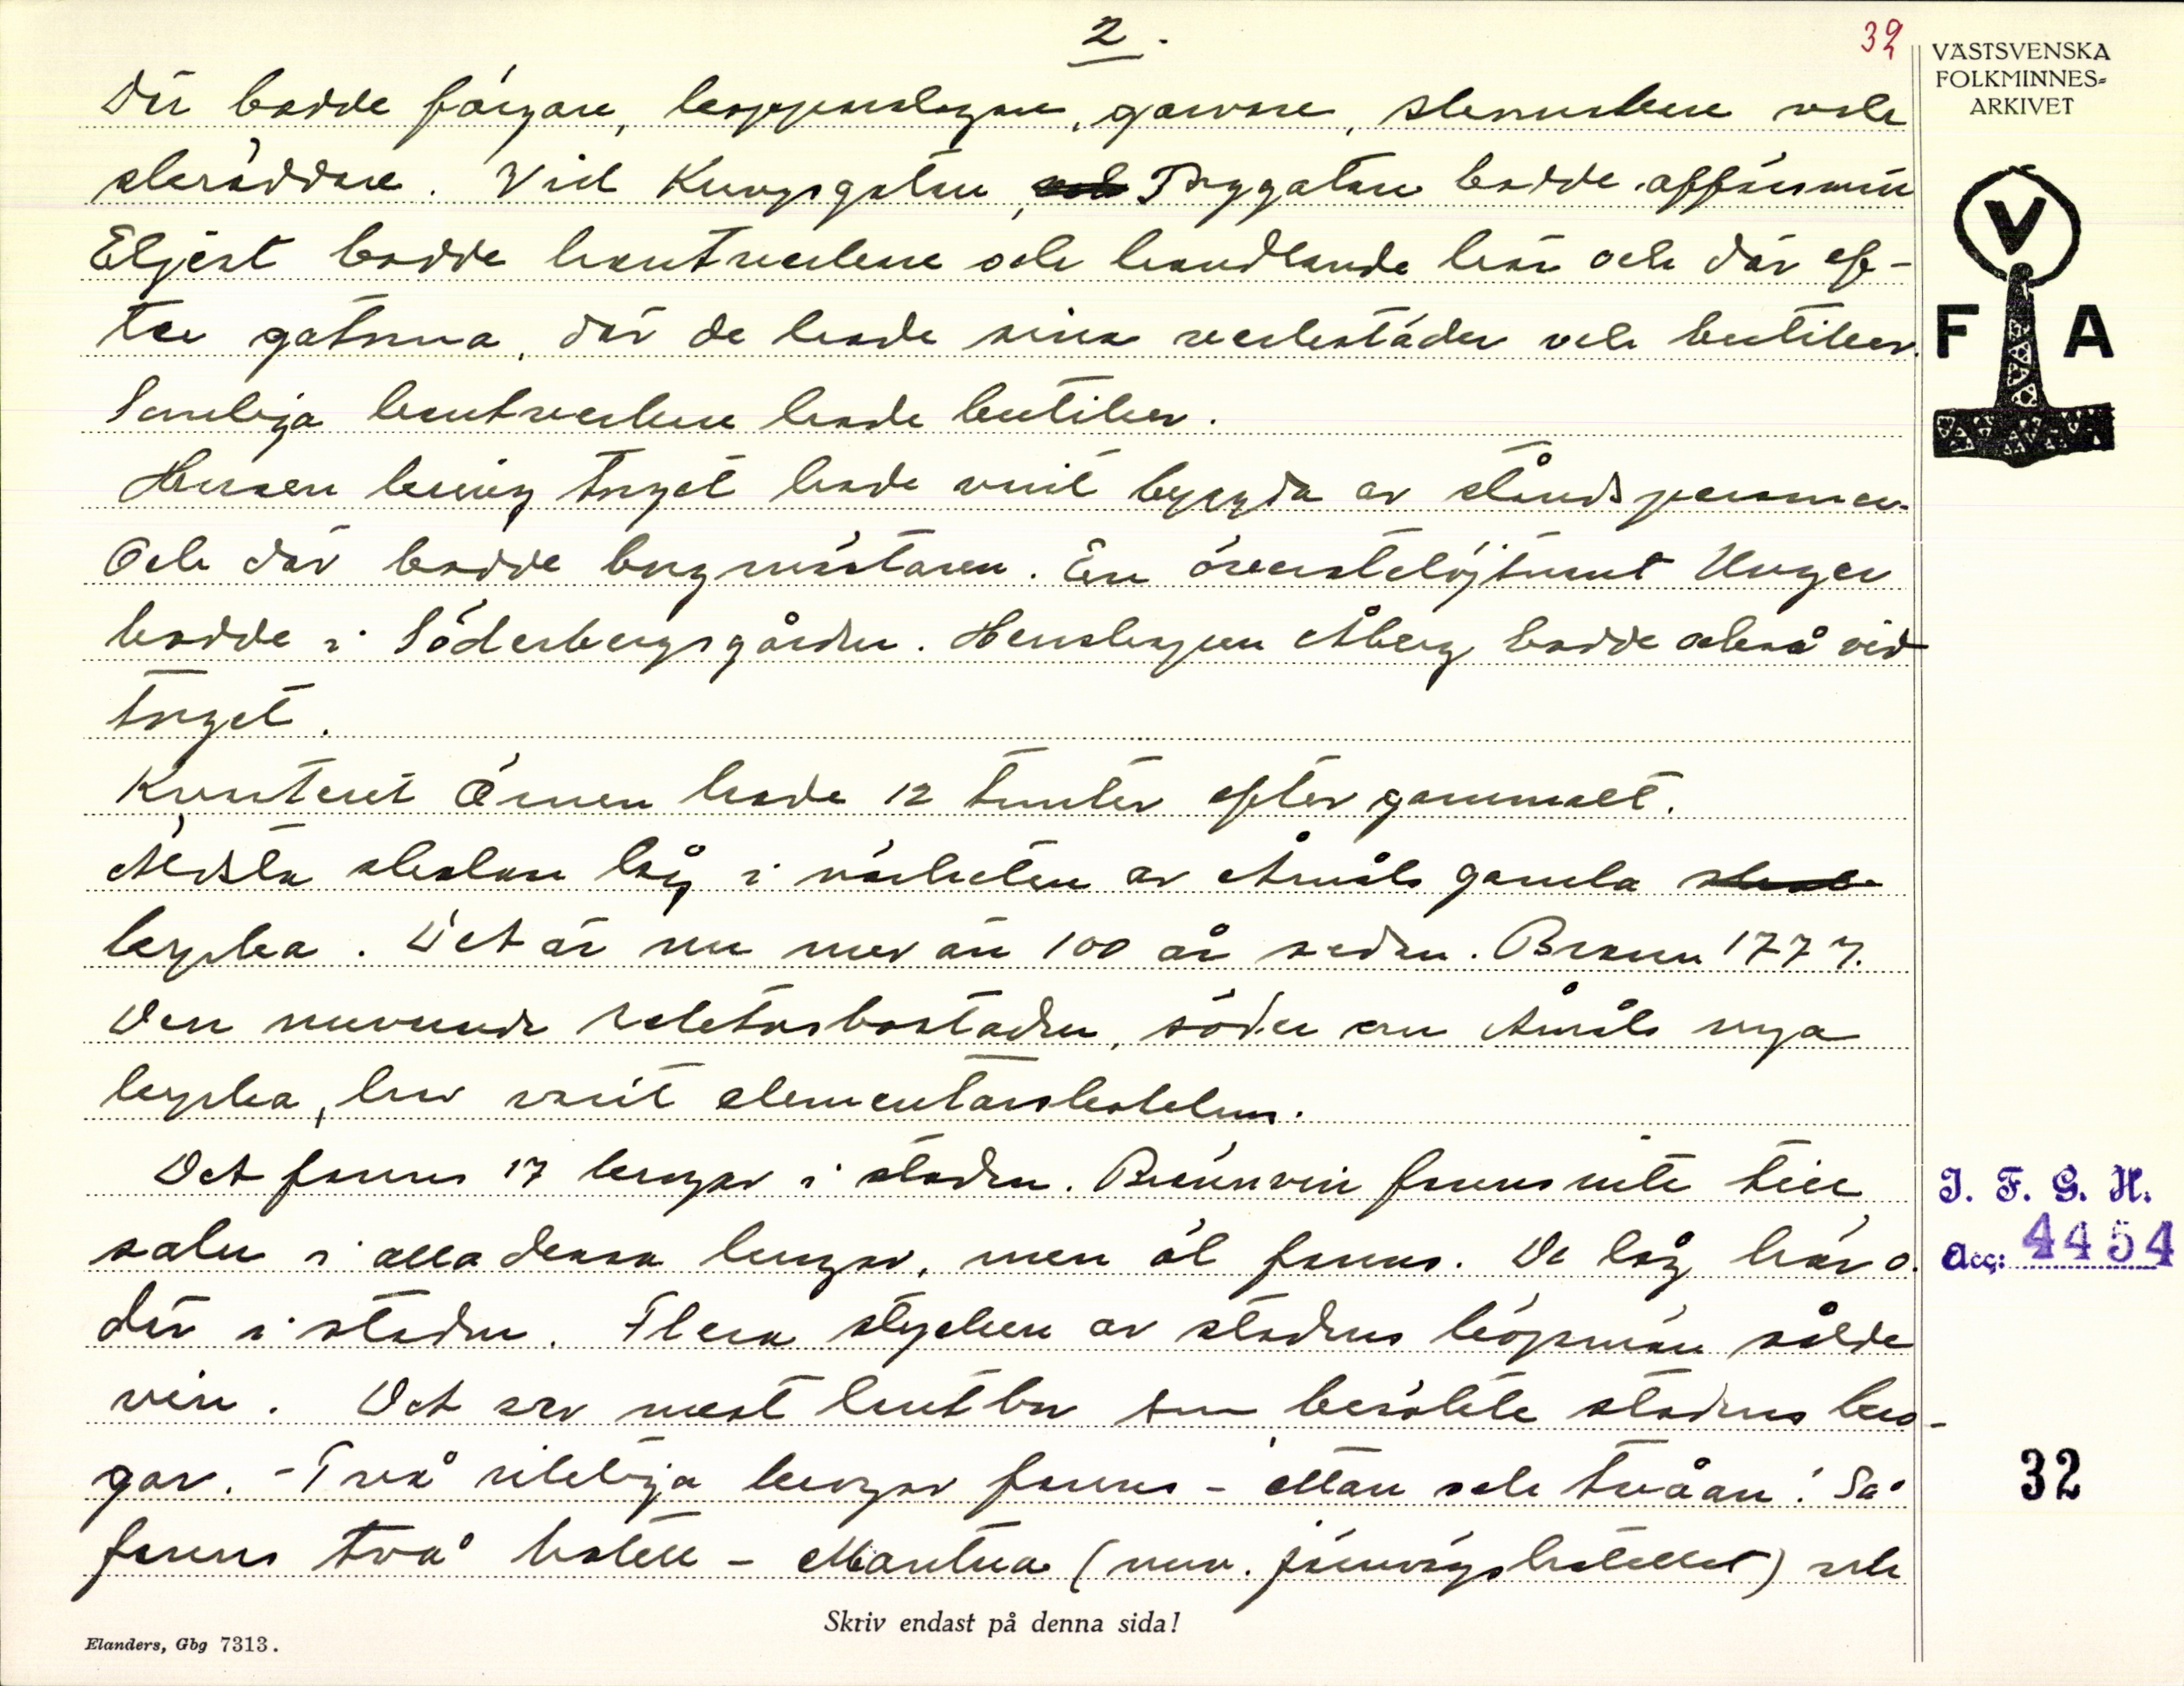 2.
32
VÄSTSVENSKA
FOLKMINNES-
ARKIVET
V
F A
Där bodde färgare, kopparslagare, garvare, skomakare och
skräddare. Vid Kungsgatan, Torggatan bodde affärsmän
Eljest bodde hantverkare och handlande här och där ef-
ter gatorna, där de hade sina verkstäder och butiker.
Samliga hantverkare hade butiker.
Husen kring torget hade varit byggda av ståndspersoner.
Och där bodde borgmästaren. En överstelöjtnant Unger
bodde i Söderbergsgården. Åberg bodde också vid
torget.
Kvarteret Örnen hade 12 tomter efter gammalt.
Äldsta skolan låg i närheten av Åmåls gamla
kyrka. Det är nu mer än 100 år sedan. Brann 1777.
Den nuvarande rektorsbostaden, söder om Åmåls nya
kyrka, har varit elementarskolehus.
Det fanns 17 krogar i staden. Brännvin fanns inte till
salu i alla dessa krogar, men öl fanns. De låg här o.
där i staden. Flera stycken av stadens köpmän sålde
vin. Det var mest lantbor som besökte stadens kro-
gar. - Två riktiga krogar fanns - ettan och tvåan. Så
fanns två hotell - Mantua (nuv. järnvägshotellet) och
J. F. G. H.
Acc: 4454
32
Skriv endast på denna sida!
Elanders, Gbg 7313.